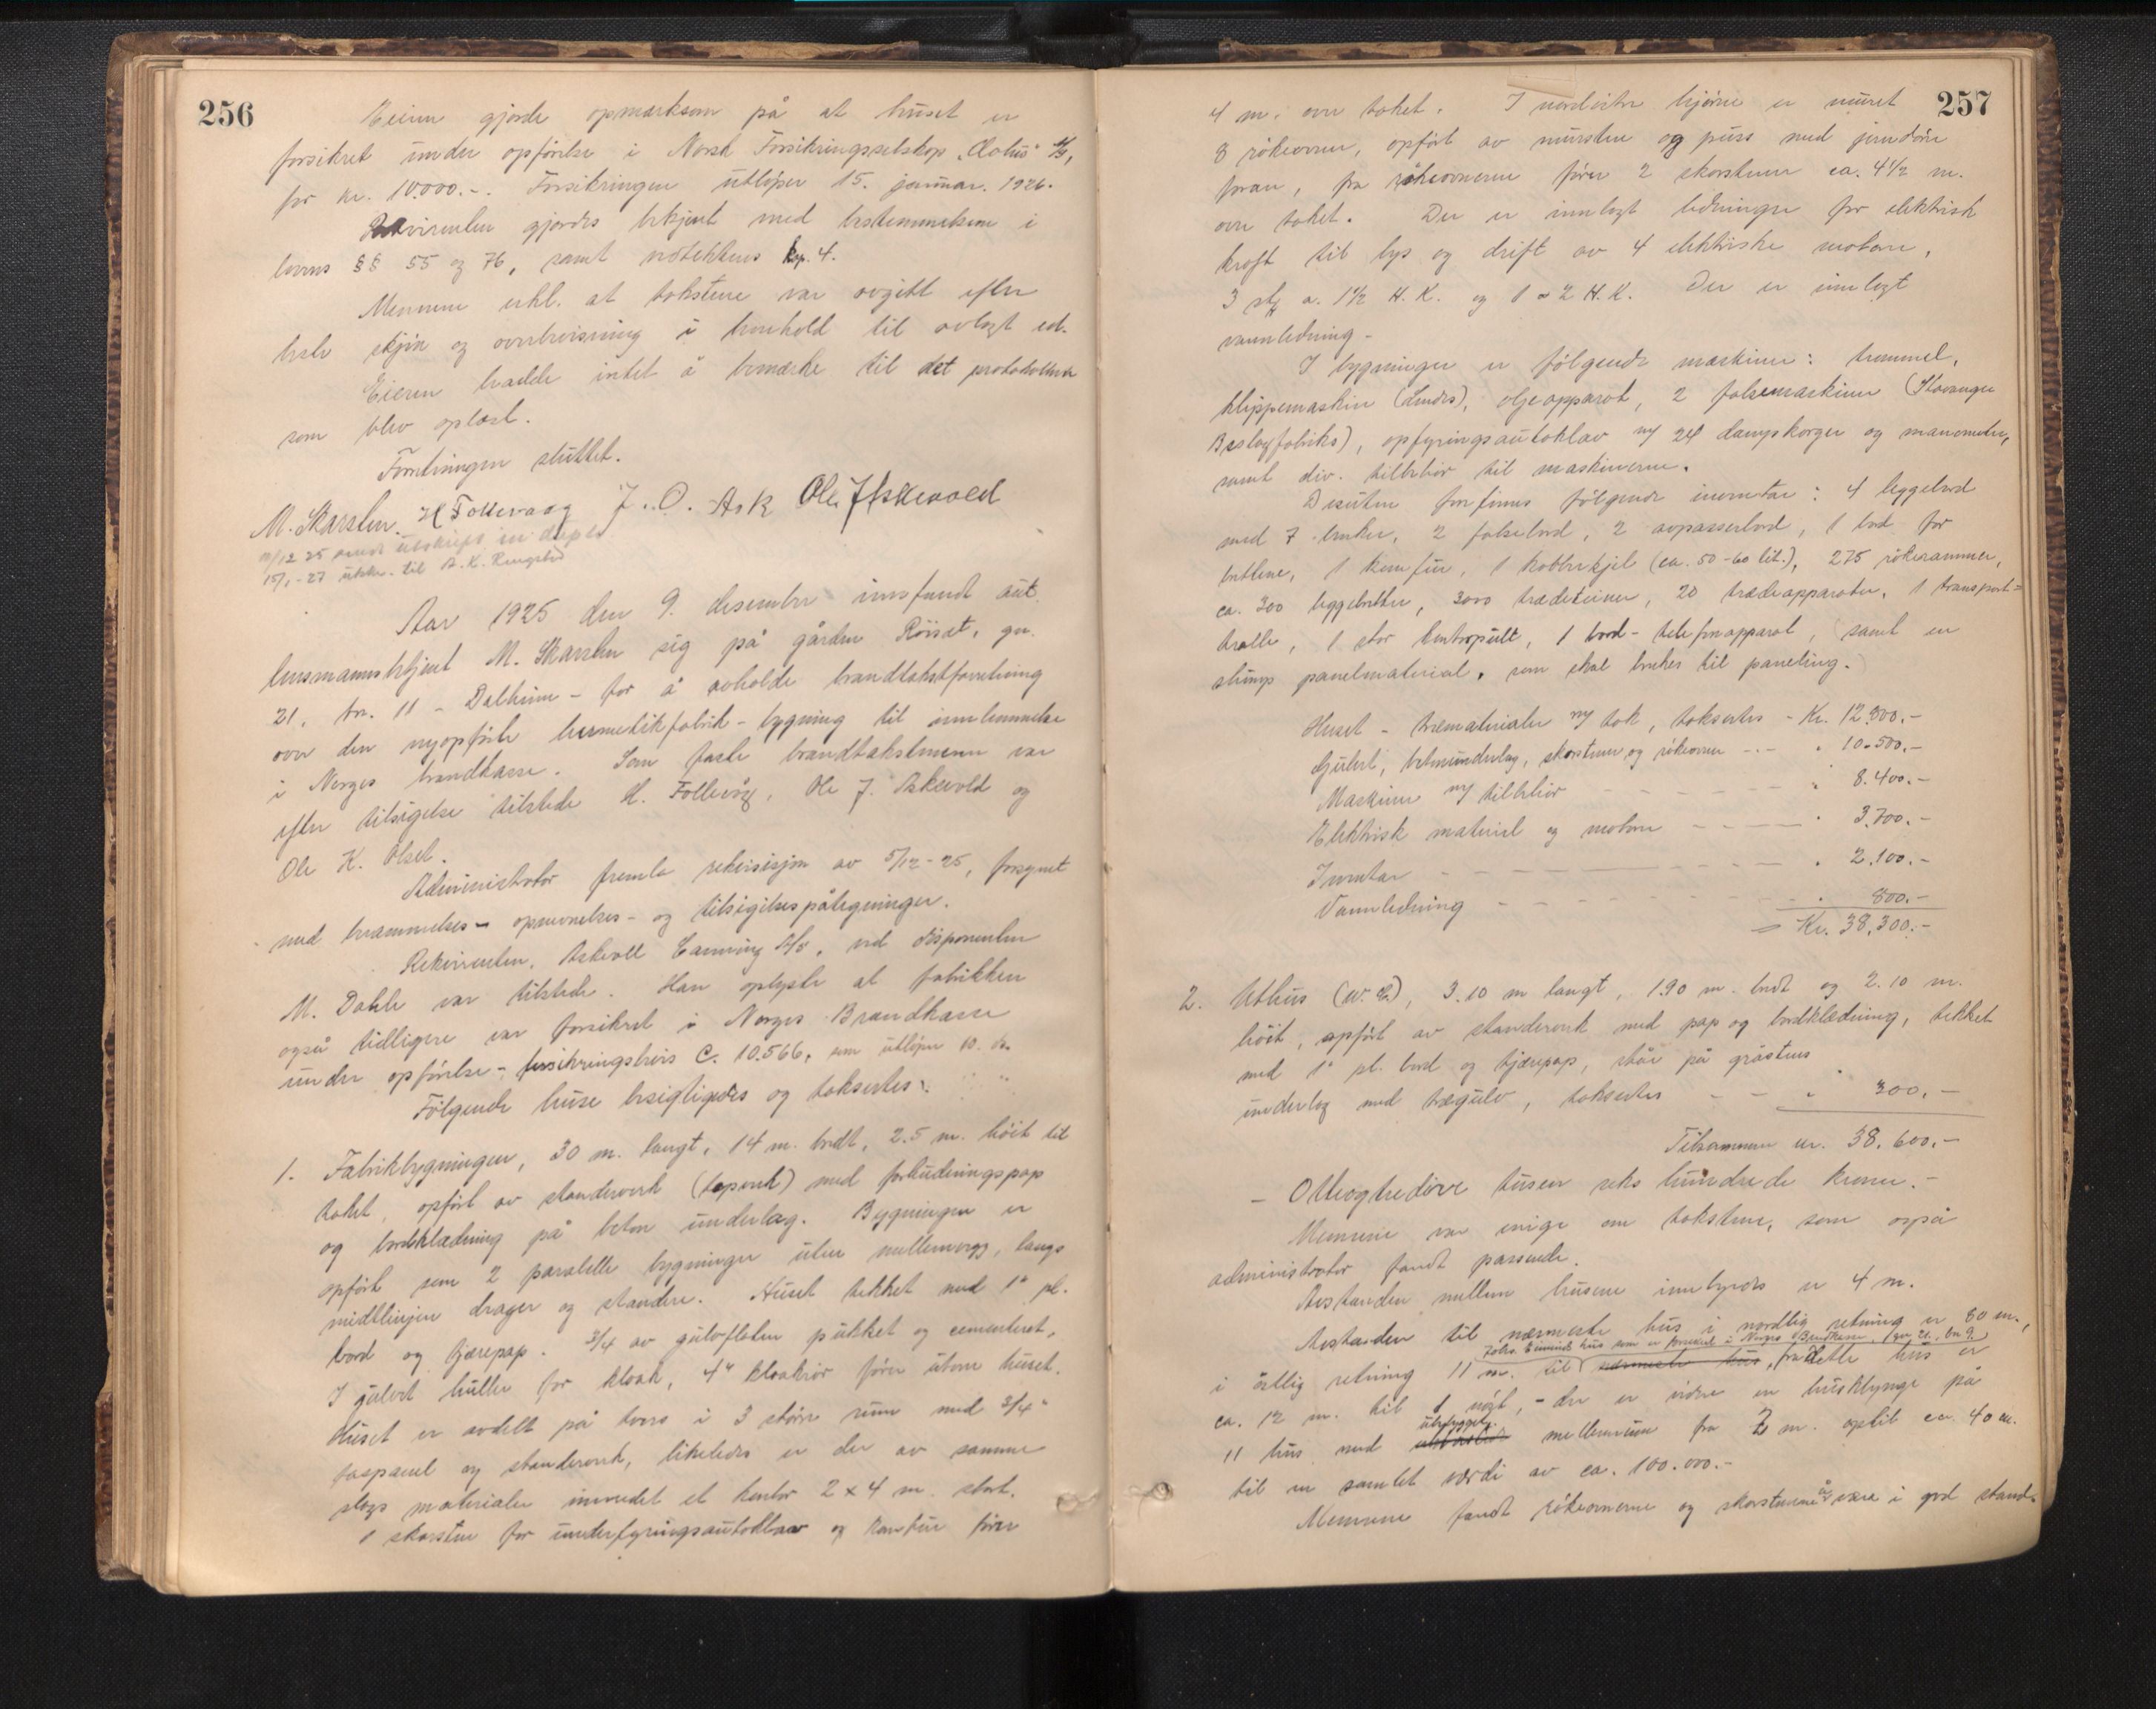 256
Eieren gjorde opmerksom på at huset er
forsikret under opførelse i Norsk Forsikringsselskap "Æolus" A/S,
for kr. 10.000.-. Forsikringen utløper 15. januar. 1926.
Rekvirenten gjordes bekjent med bestemmelsene i
lovens §§ 55 og 76, samt vedtektens kap. 4.
Mennene erkl. at takstene var avgitt efter
beste skjøn og overbevisning i henhold til avlagt ed.
Eieren hadde intet å bemerke til det protokollerte
som blev oplæst.
Forretningen sluttet.
M. Skarsten. H Follevaag J. O. Ask Ole J Askevold
15/1-27 utskr. til A. K. Ringstad
Aar 1925 den 9. desember innfandt aut.
lensmannsbetjent M. Skarsten sig på gården Røiset, gn.
21, bn. 11 - Dalheim - for å avholde brandtakstforretning
over den nyopførte hermetikfabrik-bygning til innlemmelse
i Norges brandkasse. Som faste brandtakstmenn var
efter tilsigelse tilstede H. Follevåg, Ole J. Askevold og
Ole K. Olset.
Administrator fremla rekvisisjon av 5/12-25, forsynet
med berammelses- opnevnelses- og tilsigelsespåtegninger.
Rekvirenten, Askvoll Canning A/S, ved disponenten
M. Dahle var tilstede. Han oplyste at fabrikken
også tidligere var forsikret i Norges Brandkasse
under opførelse - forsikringsbevis C. 10.566, som utløper 10. ds.
Følgende huse besigtigedes og taksertes:
1. Fabrikbygningen, 30 m. langt, 14 m. bredt, 2.5 m. høit til
taket, opført av standerverk (tapverk) med forhudningspap
og bordklædning på beton underlag. Bygningen er
opført som 2 paralelle bygninger uten mellemvegg, langs
midtlinjen drager og standere. Huset tekket med 1" pl.
bord og tjærepap. 3/4 av gulvflaten pukket og cementeret,
I gulvet huller for kloak, 4" kloakrør fører utom huset.
Huset er avdelt på tvers i 3 større rum med 3/4"
faspanel og standerverk, likeledes er der av samme
slags materialer innredet et kontor 2 x 4 m. stort.
1 skorsten for underfyringsautoklav og komfur fører
257
4 m. over taket. I nordvestre hjørne er muret
8 røkeovner, opført av mursten og puss med jerndøre
foran, fra røkeovnene fører 2 skorstener ca. 4 1/2 m.
over taket. Der er innlagt ledninger for elektrisk
kraft til lys og drift av 4 elektriske motorer,
3 stk a. 1 1/2 H. K. og 1 a 2 H. K. Der er innlagt
vannledning -
I bygningen er følgende maskiner: trommel,
klippemaskin (Lunds), oljeapparat, 2 falsemaskiner (Stavanger
Beslagfabriks), opfyringsautoklav m/ 24 dampkorger og manometer,
samt div. tilbehør til maskinerne.
Desuten forfinnes følgende inventar: 4 leggebord
med 7 benker, 2 falsebord, 2 avpasserbord, 1 bord for
brettene, 1 komfur, 1 kobberkjel (ca. 50-60 lit.), 275 røkerammer,
ca. 300 leggebretter, 3000 trædeteiner, 20 trædeapparater, 1 transport=
tralle, 1 stor kontorpult, 1 bord-telefonapparat, (samt en
slump panelmaterial, som skal brukes til paneling.)
Huset - trematerialer m/ tak, taksertes - Kr. 12.800.-
Gulvet, betonunderlag, skorstener og røkeovner -.- " 10.500.-
Maskiner m/ tilbehør - - - - " 8.400.-
Elektrisk materiel og motorer - - - " 3.700.-
Inventar - - - - " 2.100.-
Vannledning - - - - " 800.-
= Kr. 38,300.-
2. Uthus (w. c.), 3.10 m langt, 1.90 m. bredt og 2.10 m.
høit, opført av standerverk med pap og bordklædning, tekket
med 1" pl. bord og tjærepap, står på gråstens
underlag med tregulv, taksertes - - " 300.-
Tilsammen kr. 38.600.-
- Otteogtredive tusen seks hundrede kroner.-
Mennene var enige om takstene, som også
administrator fandt passende.
Avstanden mellem husene innbyrdes er 4 m.
Avstanden til nærmeste hus i nordlig retning er 80 m.,
hus som er forsikret i Norges Brandkasse, (gn 21, bn 9.)
i østlig retning 11 m. til nærmeste hus, fra dette hus er
ca. 12 m. til 1 nøst, - der er videre en husklynge på
ubebygget
11 hus med mellemrum fra 2 m. optil ca. 40 m.
til en samlet verdi av ca. 100.000.-
Mennene fandt røkeovnerne og skorstenene å være i god stand.